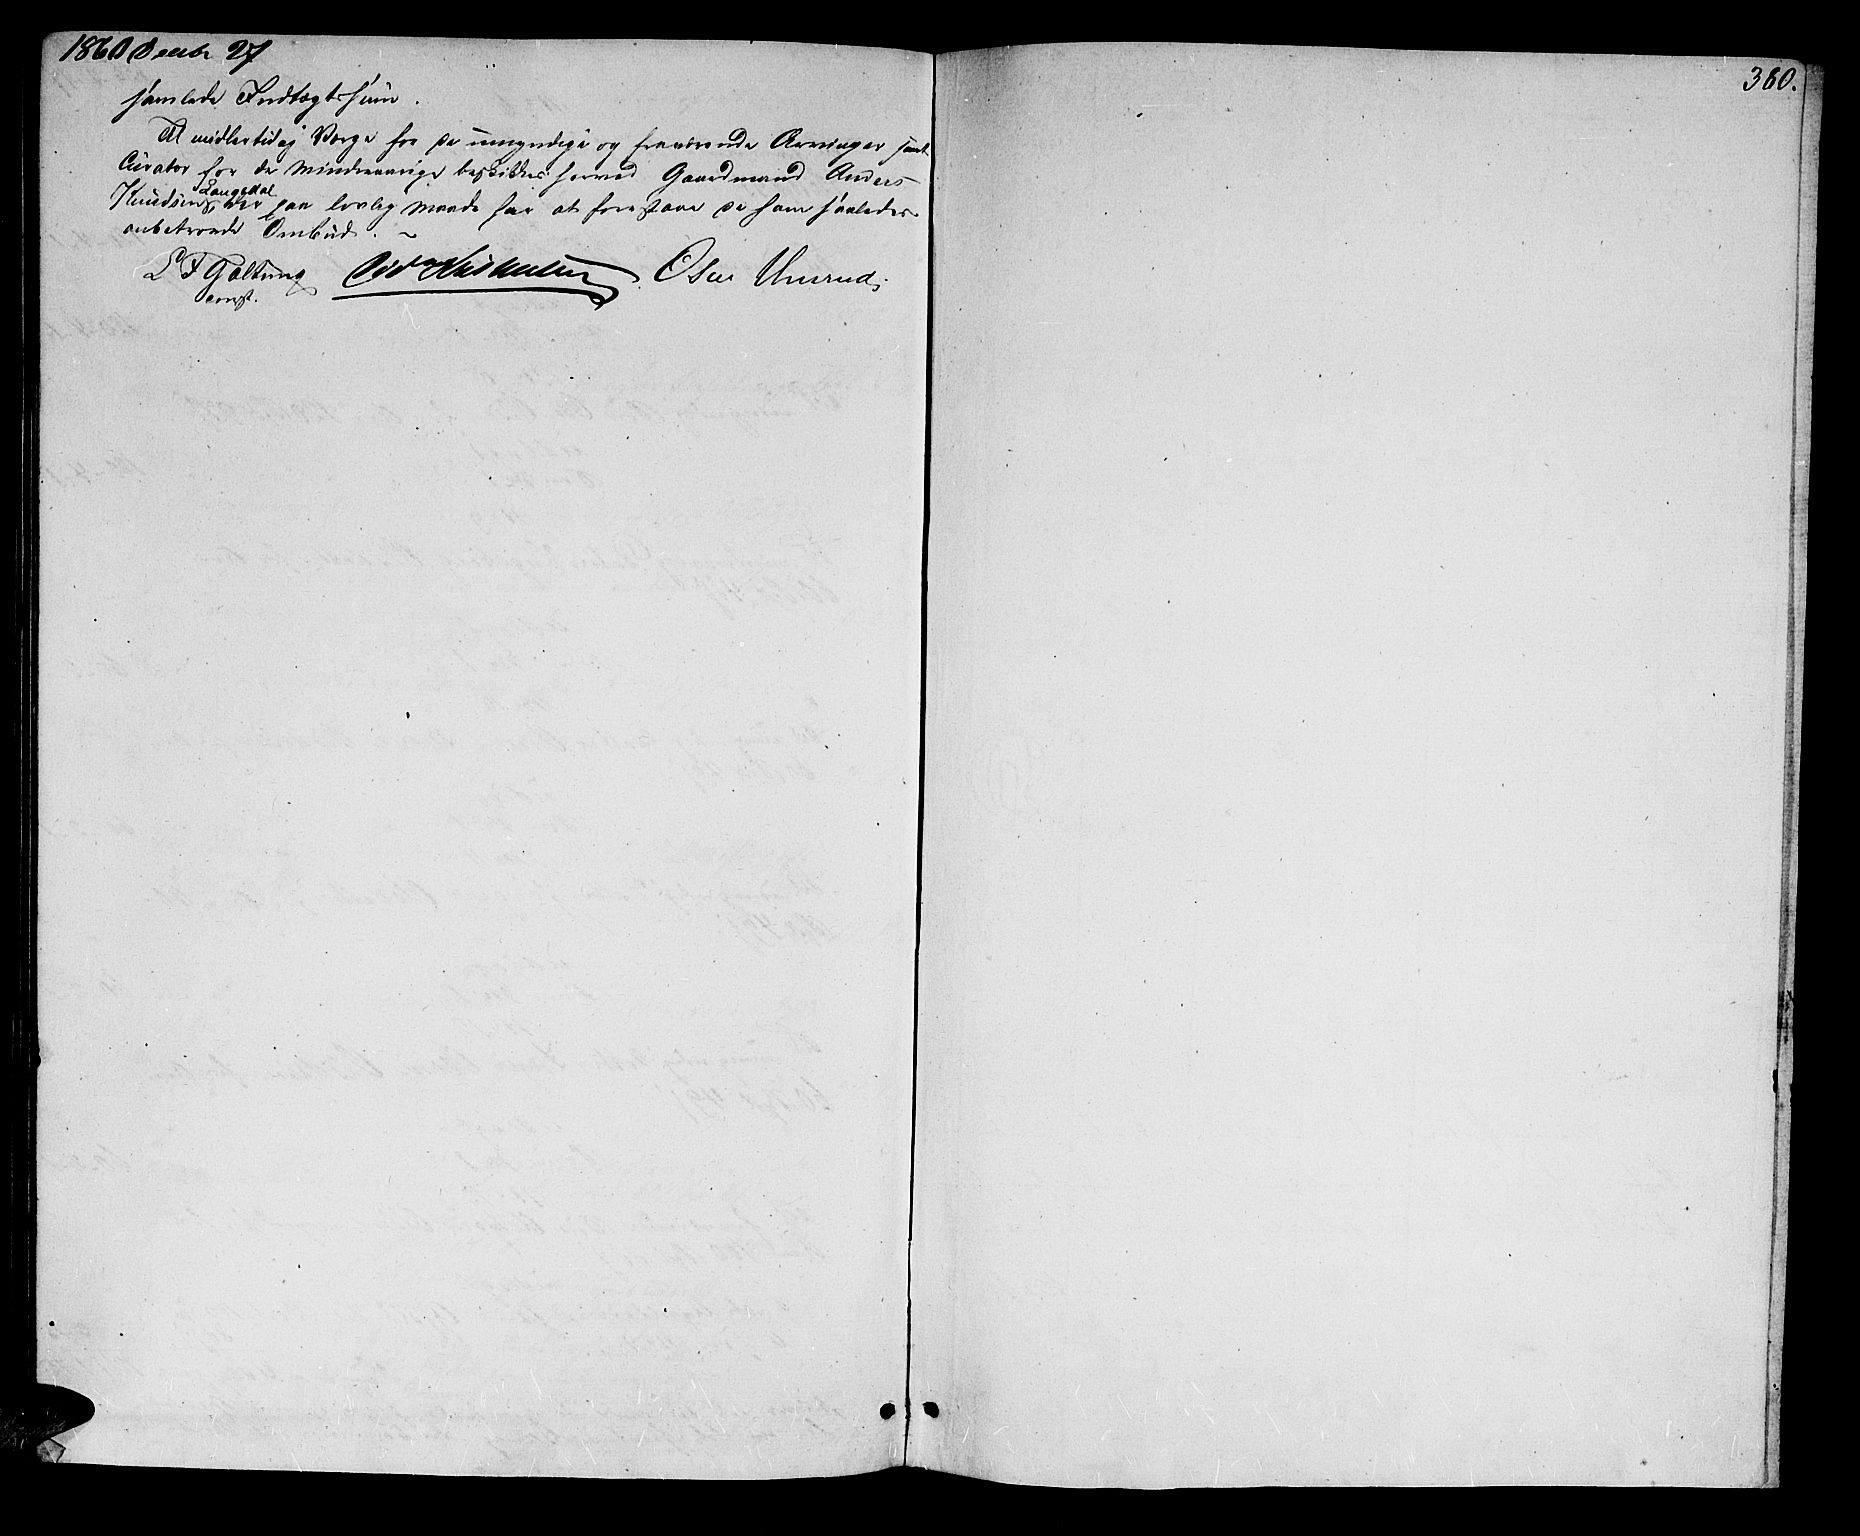 1860 Decbr 27
samlede Indtægtssum.
Til midlertidig Værge for de umyndige og fraværende Arvinger samt
Curator for de Mindreaarige beskikkes herved Gaardmand Anders
Knudsen Langedal, der paa lovlig Maade har at forestaae de ham saaledes
anbetroede Ombud. ~
L F Galtung
const.
360.